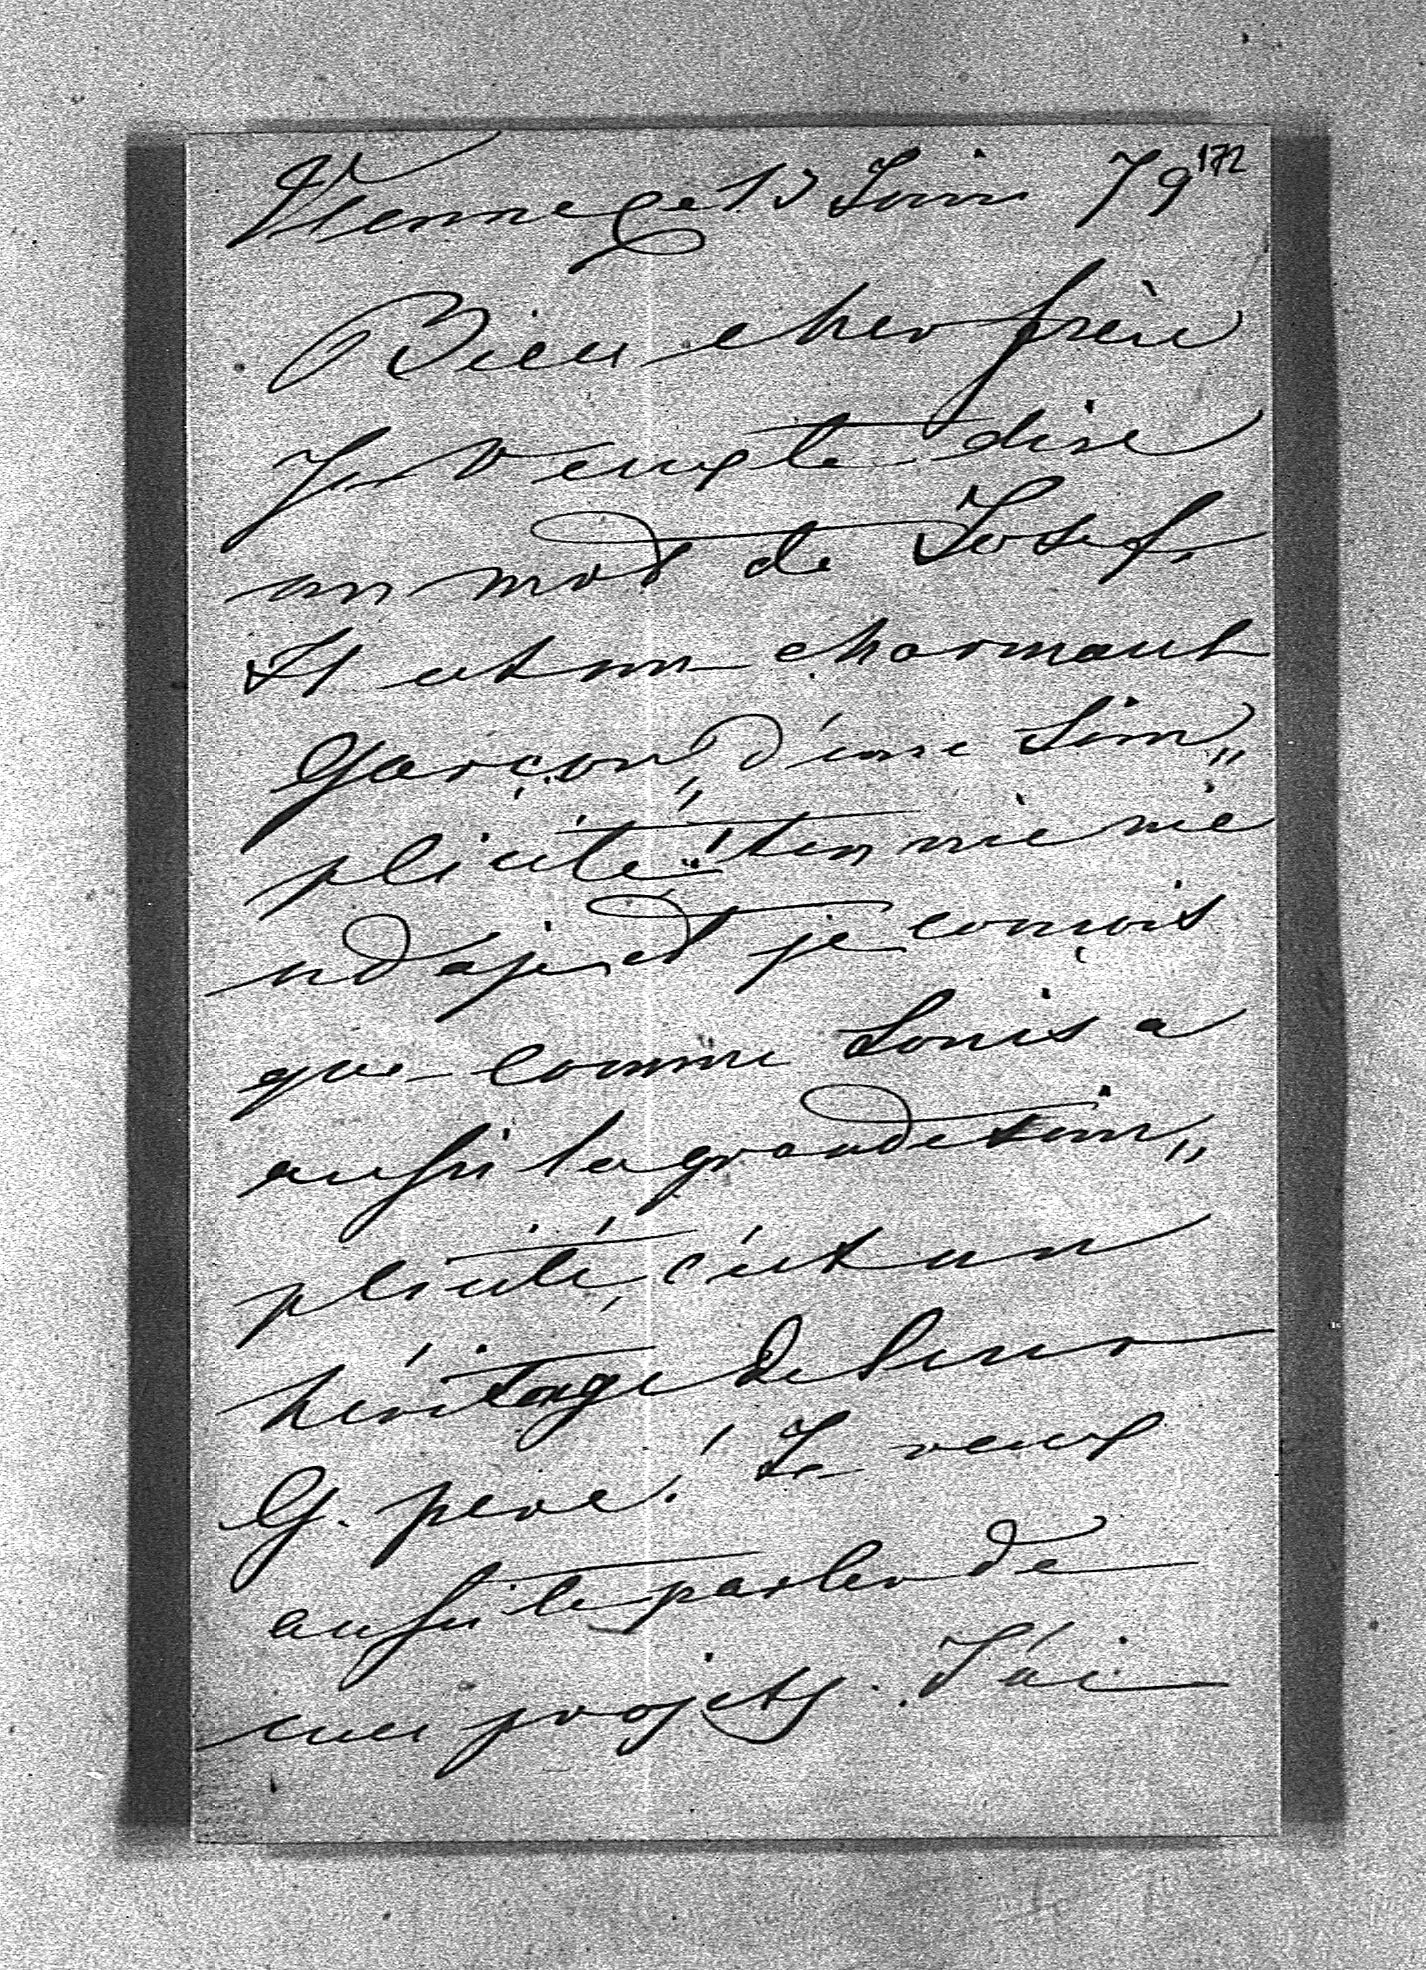 172
Vienne ce 13 Juin 79
Bien cher frère
Je veux te dire
un mot de Josef.
Il est un charmant
garçon, d'une sim„
plicité
et je conçois
que comme Louis a
aussi la grande sim„
plicité, c'est un
héritage de leur
G. père! Je veux
aussi te parler de
mes projets. J'ai